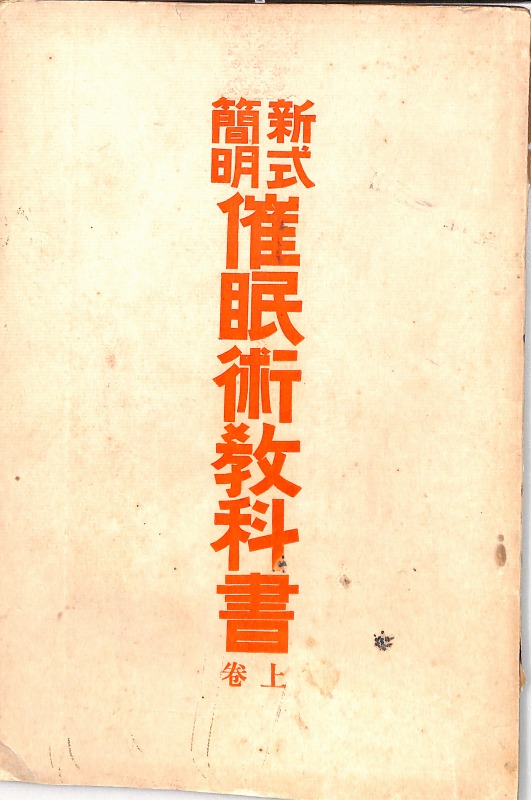 新式
簡明
催眠術教科書
上卷